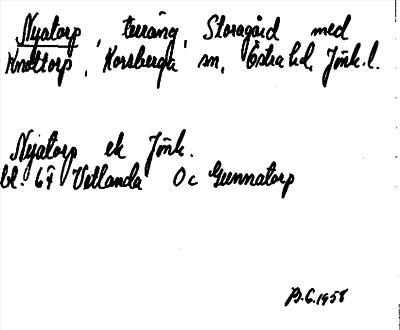 Nyatorp, terräng, Storagård med
Knottorp, Korsberga sn, Östra hd, Jönk.l.
Nyatorp ek Jönk.
bl. 67 Vetlanda Oc Gunnatorp
B.G. 1958